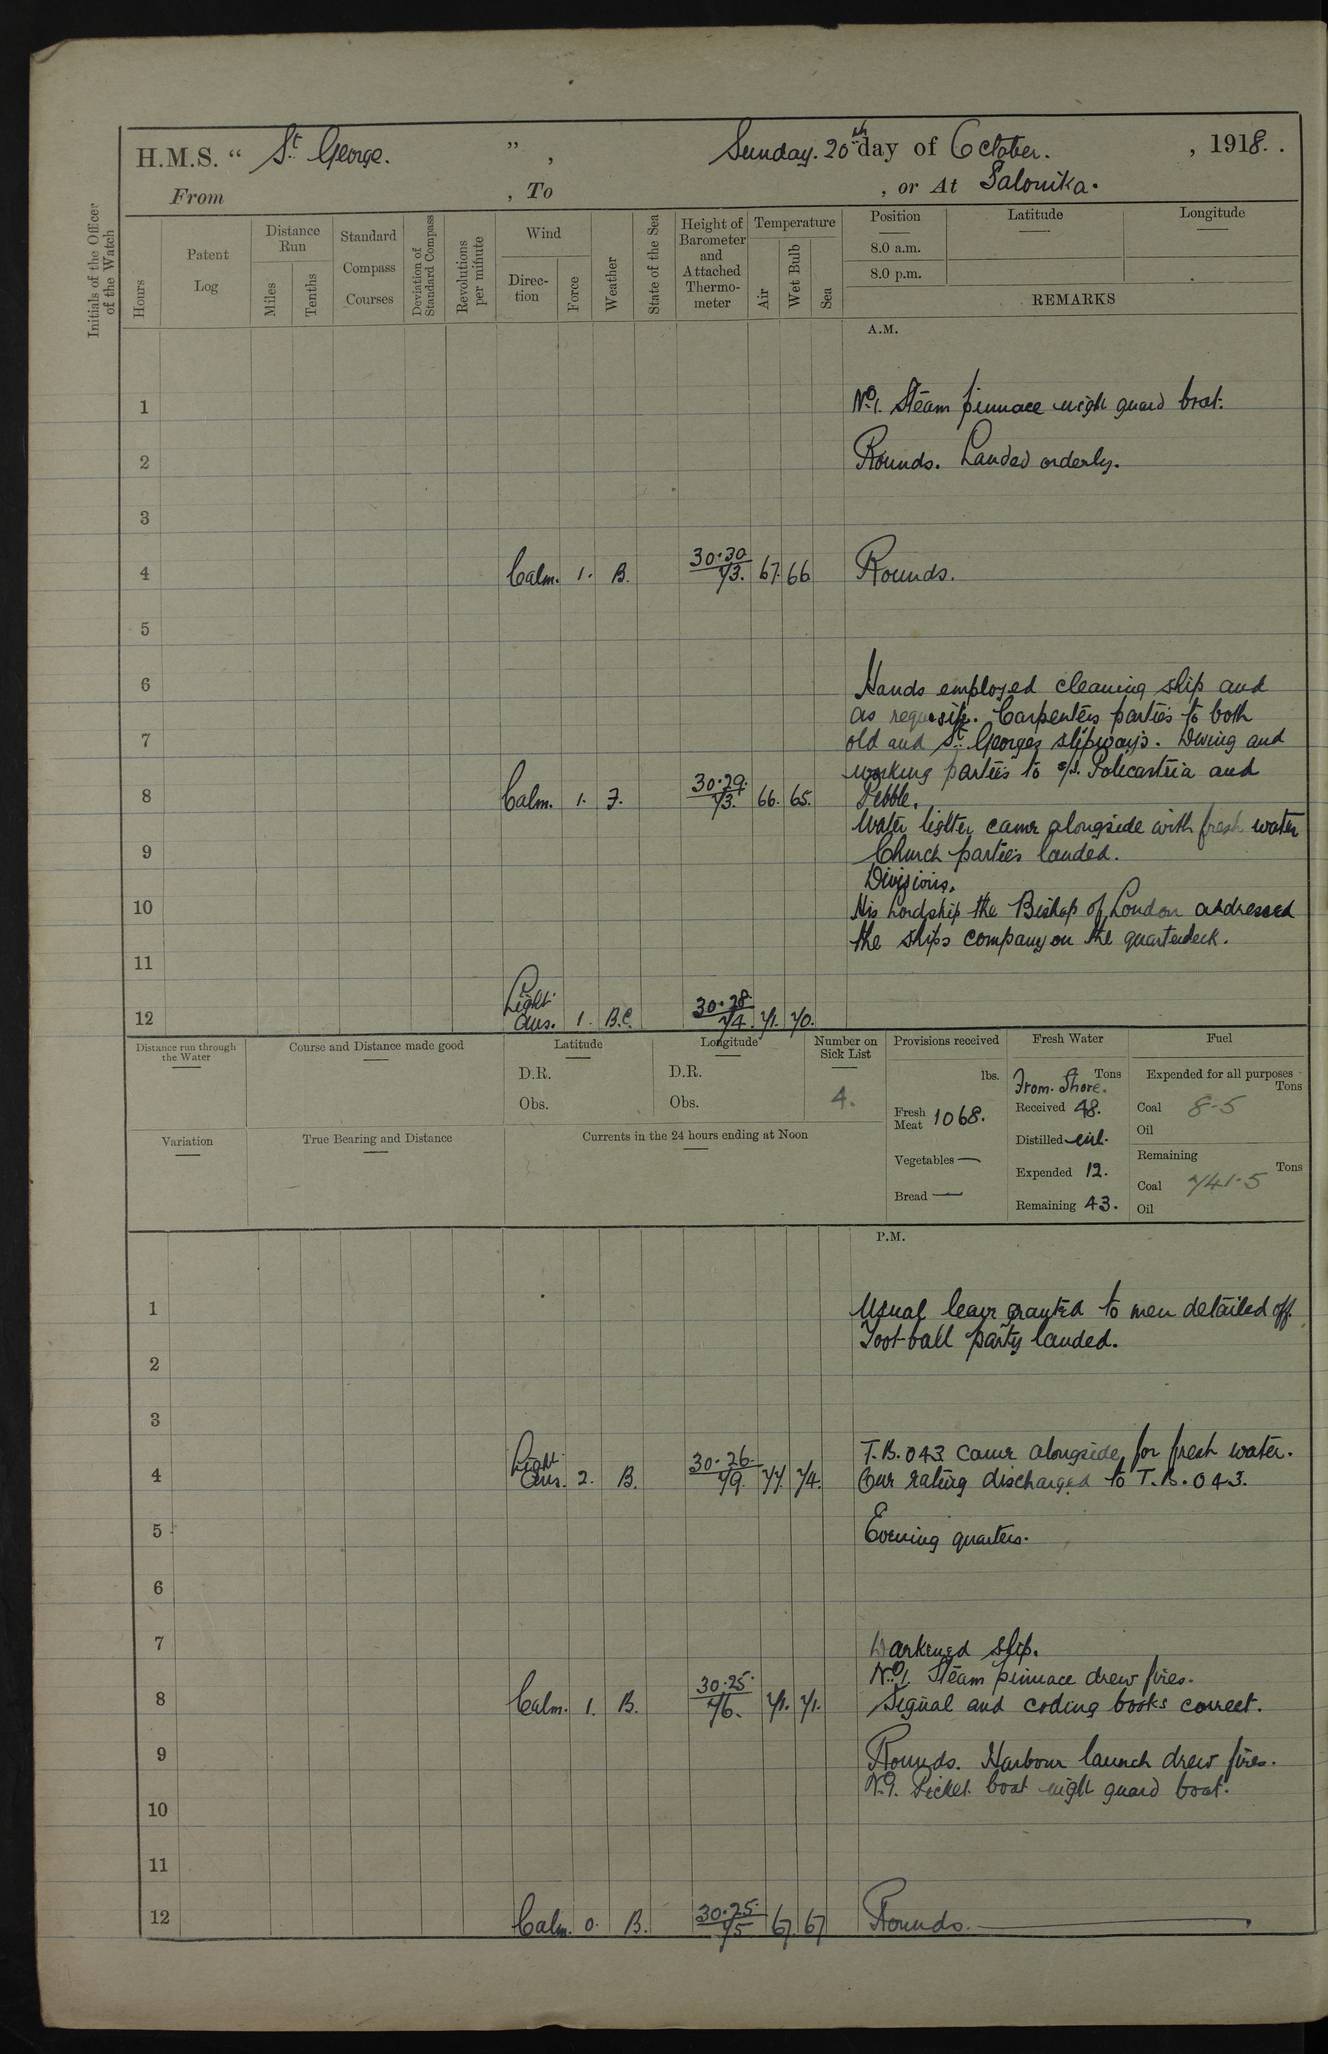 H.M.S. “ St George. ” , Sunday. 20th day of October. , 1918. .
From , To , or At Salonika.
Initials of the Officer of the Watch
Hours
Patent Log
Distance Run
Miles
Tenths
Standard Compass Courses
Deviation of Standard Compass
Revolutions per minute
Wind
Direction
Force
Weather
State of the Sea
Height of Barometer and Attached Thermometer
Temperature
Air
Wet Bulb
Sea
Position Latitude Longitude
8.0 a.m.
8.0 p.m.
REMARKS
A.M.
1 No. 1. Steam pinnace night guard boat.
2 Rounds. Landed orderly.
3
4 Calm. 1. B. 30.30 73. 67. 66 Rounds.
5
6 Hands employed cleaning ship and
as requisite. Carpenters parties to both
7 old and St Georges slipways. Diving and
working parties to s/s. Policastria and
8 Calm. 1. F. 30.29. 73. 66. 65. Pebble.
Water lighter came alongside with fresh water
9 Church parties landed.
Divisions.
10 His Lordship the Bishop of London addressed
the ships company on the quarterdeck.
11
12 Light airs. 1. B.C. 30.28. 74. 71. 70.
Distance run through the Water
Course and Distance made good
Latitude
D.R.
Obs.
Longitude
D.R.
Obs.
Number on Sick List
4.
Provisions received
lbs.
Fresh Meat 1068.
Vegetables —
Bread —
Fresh Water
Tons
From. Shore.
Received 48.
Distilled nil.
Expended 12.
Remaining 43.
Fuel
Expended for all purposes
Tons
Coal 8-5
Oil
Remaining
Tons
Coal 741-5
Oil
Variation
True Bearing and Distance
Currents in the 24 hours ending at Noon
P.M.
1 Usual leave granted to men detailed off.
Foot-ball party landed.
2
3
T.B. 043 came alongside for fresh water.
4 Light airs. 2. B. 30.26. 79. 77. 74. One rating discharged to T.B. 043.
5 Evening quarters.
6
7 Darkened ship.
No. 1. Steam pinnace drew fires.
8 Calm. 1. B. 30.25. 76. 71. 71. Signal and coding books correct.
9 Rounds. Harbour launch drew fires.
Picket boat night guard boat.
10
11
12 Calm. 0. B. 30.25. 75 67. 67 Rounds.